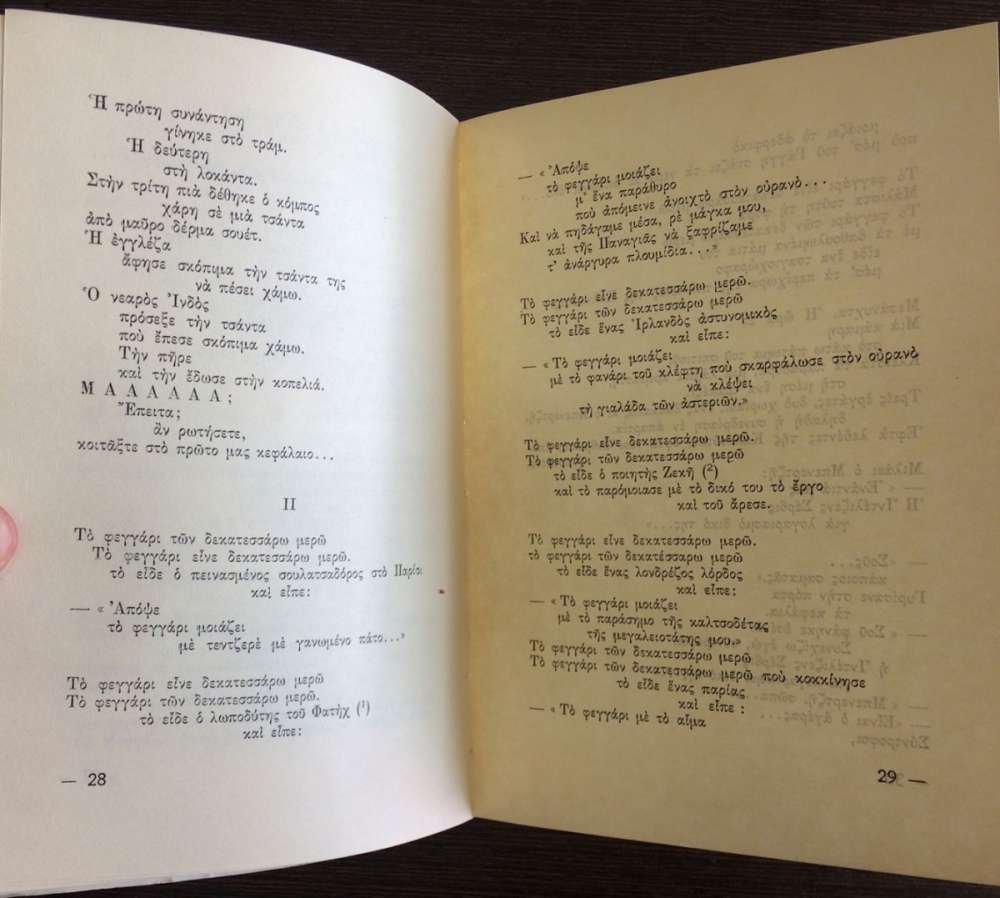 Ἡ πρώτη συνάντηση
γίνηκε στὸ τράμ.
Ἡ δεύτερη
στὴ λοκάντα.
Στὴν τρίτη πιὰ δέθηκε ὁ κόμπος
χάρη σὲ μιὰ τσάντα
ἀπὸ μαῦρο δέρμα σουέτ.
Ἡ ἐγγλέζα
ἄφησε σκόπιμα τὴν τσάντα της
νὰ πέσει χάμω.
Ὁ νεαρὸς Ἰνδὸς
πρόσεξε τὴν τσάντα
ποὺ ἔπεσε σκόπιμα χάμω.
Τὴν πῆρε
καὶ τὴν ἔδωσε στὴν κοπελιά.
Μ Α Α Α Α Α ;
Ἔπειτα;
ἂν ρωτήσετε,
κοιτᾶξτε στὸ πρῶτο μας κεφάλαιο...
II
Τὸ φεγγάρι τῶν δεκατεσσάρω μερῶ
Τὸ φεγγάρι εἶνε δεκατεσσάρω μερῶ.
τὸ εἶδε ὁ πεινασμένος σουλατσαδόρος στὸ Παρίσι
καὶ εἶπε:
— « Ἀπόψε
τὸ φεγγάρι μοιάζει
μὲ τεντζερὲ μὲ γανωμένο πάτο...»
Τὸ φεγγάρι εἶνε δεκατεσσάρω μερῶ
Τὸ φεγγάρι τῶν δεκατεσσάρω μερῶ.
τὸ εἶδε ὁ λωποδύτης τοῦ Φατὴχ (¹)
καὶ εἶπε:
— 28
— « Ἀπόψε
τὸ φεγγάρι μοιάζει
μ' ἕνα παράθυρο
ποὺ ἀπόμεινε ἀνοιχτὸ στὸν οὐρανὸ...
Καὶ νὰ πηδάγαμε μέσα, ρὲ μάγκα μου,
καὶ τῆς Παναγιᾶς νὰ ξαφρίζαμε
τ' ἀνάργυρα πλουμίδια...»
Τὸ φεγγάρι εἶνε δεκατεσσάρω μερῶ.
Τὸ φεγγάρι τῶν δεκατεσσάρω μερῶ
τὸ εἶδε ἕνας Ἰρλανδὸς ἀστυνομικὸς
καὶ εἶπε:
— « Τὸ φεγγάρι μοιάζει
μὲ τὸ φανάρι τοῦ κλέφτη ποὺ σκαρφάλωσε στὸν οὐρανὸ
νὰ κλέψει
τὴ γιαλάδα τῶν ἀστεριῶν.»
Τὸ φεγγάρι εἶνε δεκατεσσάρω μερῶ.
Τὸ φεγγάρι τῶν δεκατεσσάρω μερῶ
τὸ εἶδε ὁ ποιητὴς Ζεκῆ (²)
καὶ τὸ παρόμοιασε μὲ τὸ δικό του τὸ ἔργο
καὶ τοῦ ἄρεσε.
Τὸ φεγγάρι εἶνε δεκατεσσάρω μερῶ.
τὸ φεγγάρι τῶν δεκατέσσάρω μερῶ
τὸ εἶδε ἕνας λονδρέζος λόρδος
καὶ εἶπε:
— « Τὸ φεγγάρι μοιάζει
μὲ τὸ παράσημο τῆς καλτσοδέτας
τῆς μεγαλειοτάτης μου.»
Τὸ φεγγάρι τῶν δεκατεσσάρω μερῶ
Τὸ φεγγάρι τῶν δεκατεσσάρω μερῶ ποὺ κοκκίνησε
τὸ εἶδε ἕνας παρίας
καὶ εἶπε :
— « Τὸ φεγγάρι μὲ τὸ αἷμα
29 —